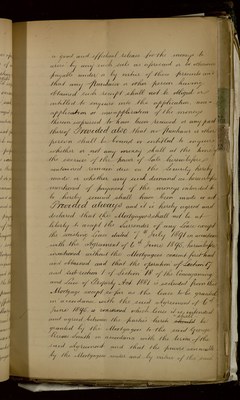 a good and effectual release for the moneys to
arise by any such sale as aforesaid or to become
payable under or by virtue of these presents and
that any Purchaser or other person having
obtained such receipt shall not be obliged or
entitled to enquire into the application non-
application or misapplication of the moneys
therein expressed to have been received or any part
thereof Provided also that no Purchaser or other
person shall be bound or entitled to enquire
whether or not any money shall at the time of
the exercise of the power of Sale hereinbefore
contained remain due on the Security hereby
made or whether any such demand as
of payment of the moneys intended to
be hereby secured shall have been made or not
Provided always and it is hereby agreed and
declared that the Mortgagor shall not be at
liberty to accept the surrender of any Lease except
the existing Lease dated 7th July 1891 in accordance
with the Agreement of 6th June 1896 hereinbefore
mentioned without the Mortgagees consent first had
and obtained and that the operation of Section 17
and sub-section 1 of Section 18 of the Conveyancing
and Law of Property Act 1881 is excluded from this
Mortgage except so far as the lease to be granted
in accordance with the said Agreement of 6th
June 1896 is concerned which lease it is understood
and agreed between the parties hereto
granted by the Mortgagor to the said George
in accordance with the terms of the
said Agreement and that the power
by the Mortgagor under and by virtue of the said